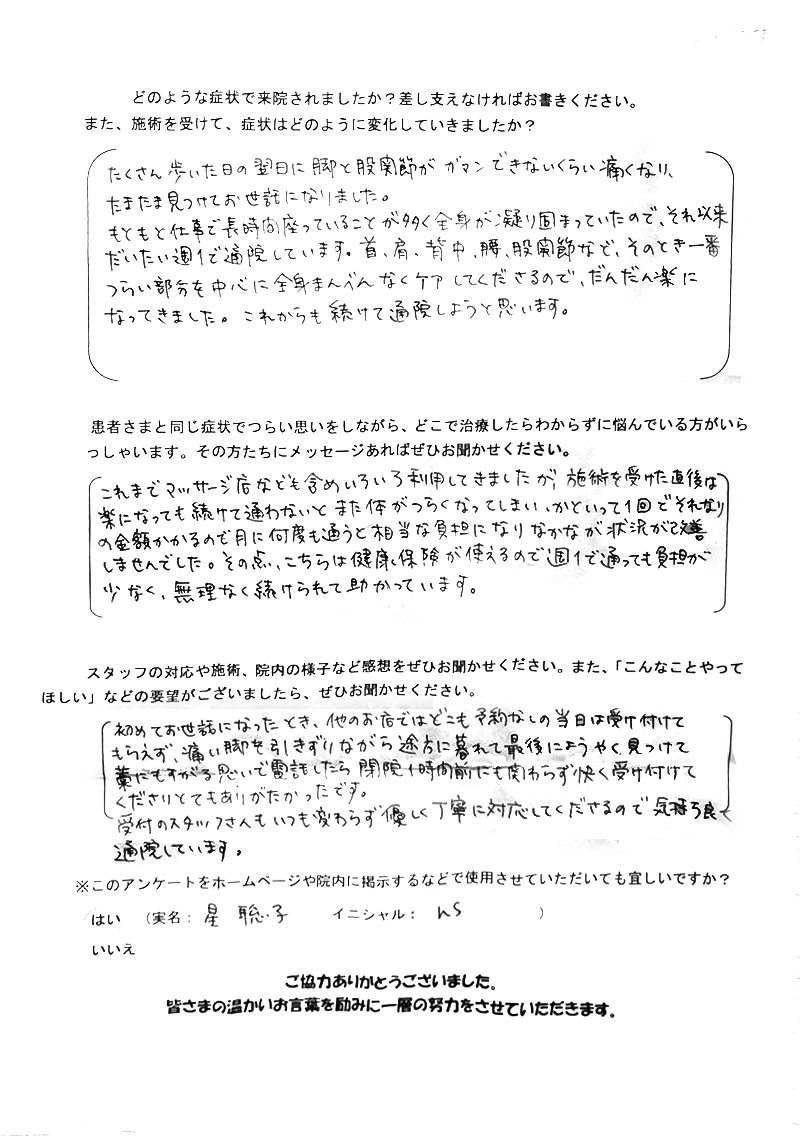 どのような症状で来院されましたか？差し支えなければお書きください。
また、施術を受けて、症状はどのように変化していきましたか？
たくさん歩いた日の翌日に脚と股関節がガマンできないくらい痛くなり、
たまたま見つけてお世話になりました。
もともと仕事で長時間座っていることが多く全身が凝り固まっていたので、それ以来
だいたい週1で通院しています。首、肩、背中、腰、股関節など、そのとき一番
つらい部分を中心に全身まんべんなくケアしてくださるので、だんだん楽に
なってきました。これからも続けて通院しようと思います。
患者さまと同じ症状でつらい思いをしながら、どこで治療したらわからずに悩んでいる方がいら
っしゃいます。その方たちにメッセージあればぜひお聞かせください。
これまでマッサージ店なども含めいろいろ利用してきましたが、施術を受けた直後は
楽になっても続けて通わないとまた体がつらくなってしまい、かといって1回でそれなり
の金額かかるので月に何度も通うと相当な負担になりなかなか状況が改善
しませんでした。その点、こちらは健康保険が使えるので週1で通っても負担が
少なく、無理なく続けられて助かっています。
スタッフの対応や施術、院内の様子など感想をぜひお聞かせください。また、「こんなことやって
ほしい」などの要望がございましたら、ぜひお聞かせください。
初めてお世話になったとき、他のお店ではどこも予約なしの当日は受け付けて
もらえず、痛い脚を引きずりながら途方に暮れて最後にようやく見つけて
藁にもすがる思いで電話したら閉院1時間前にも関わらず快く受け付けて
くださりとてもありがたかったです。
受付のスタッフさんもいつも変わらず優しく丁寧に対応してくださるので気持ち良く
通院しています。
※このアンケートをホームページや院内に掲示するなどで使用させていただいても宜しいですか？
はい （実名：星 聡子 イニシャル： hS ）
いいえ
ご協力ありがとうございました。
皆さまの温かいお言葉を励みに一層の努力をさせていただきます。